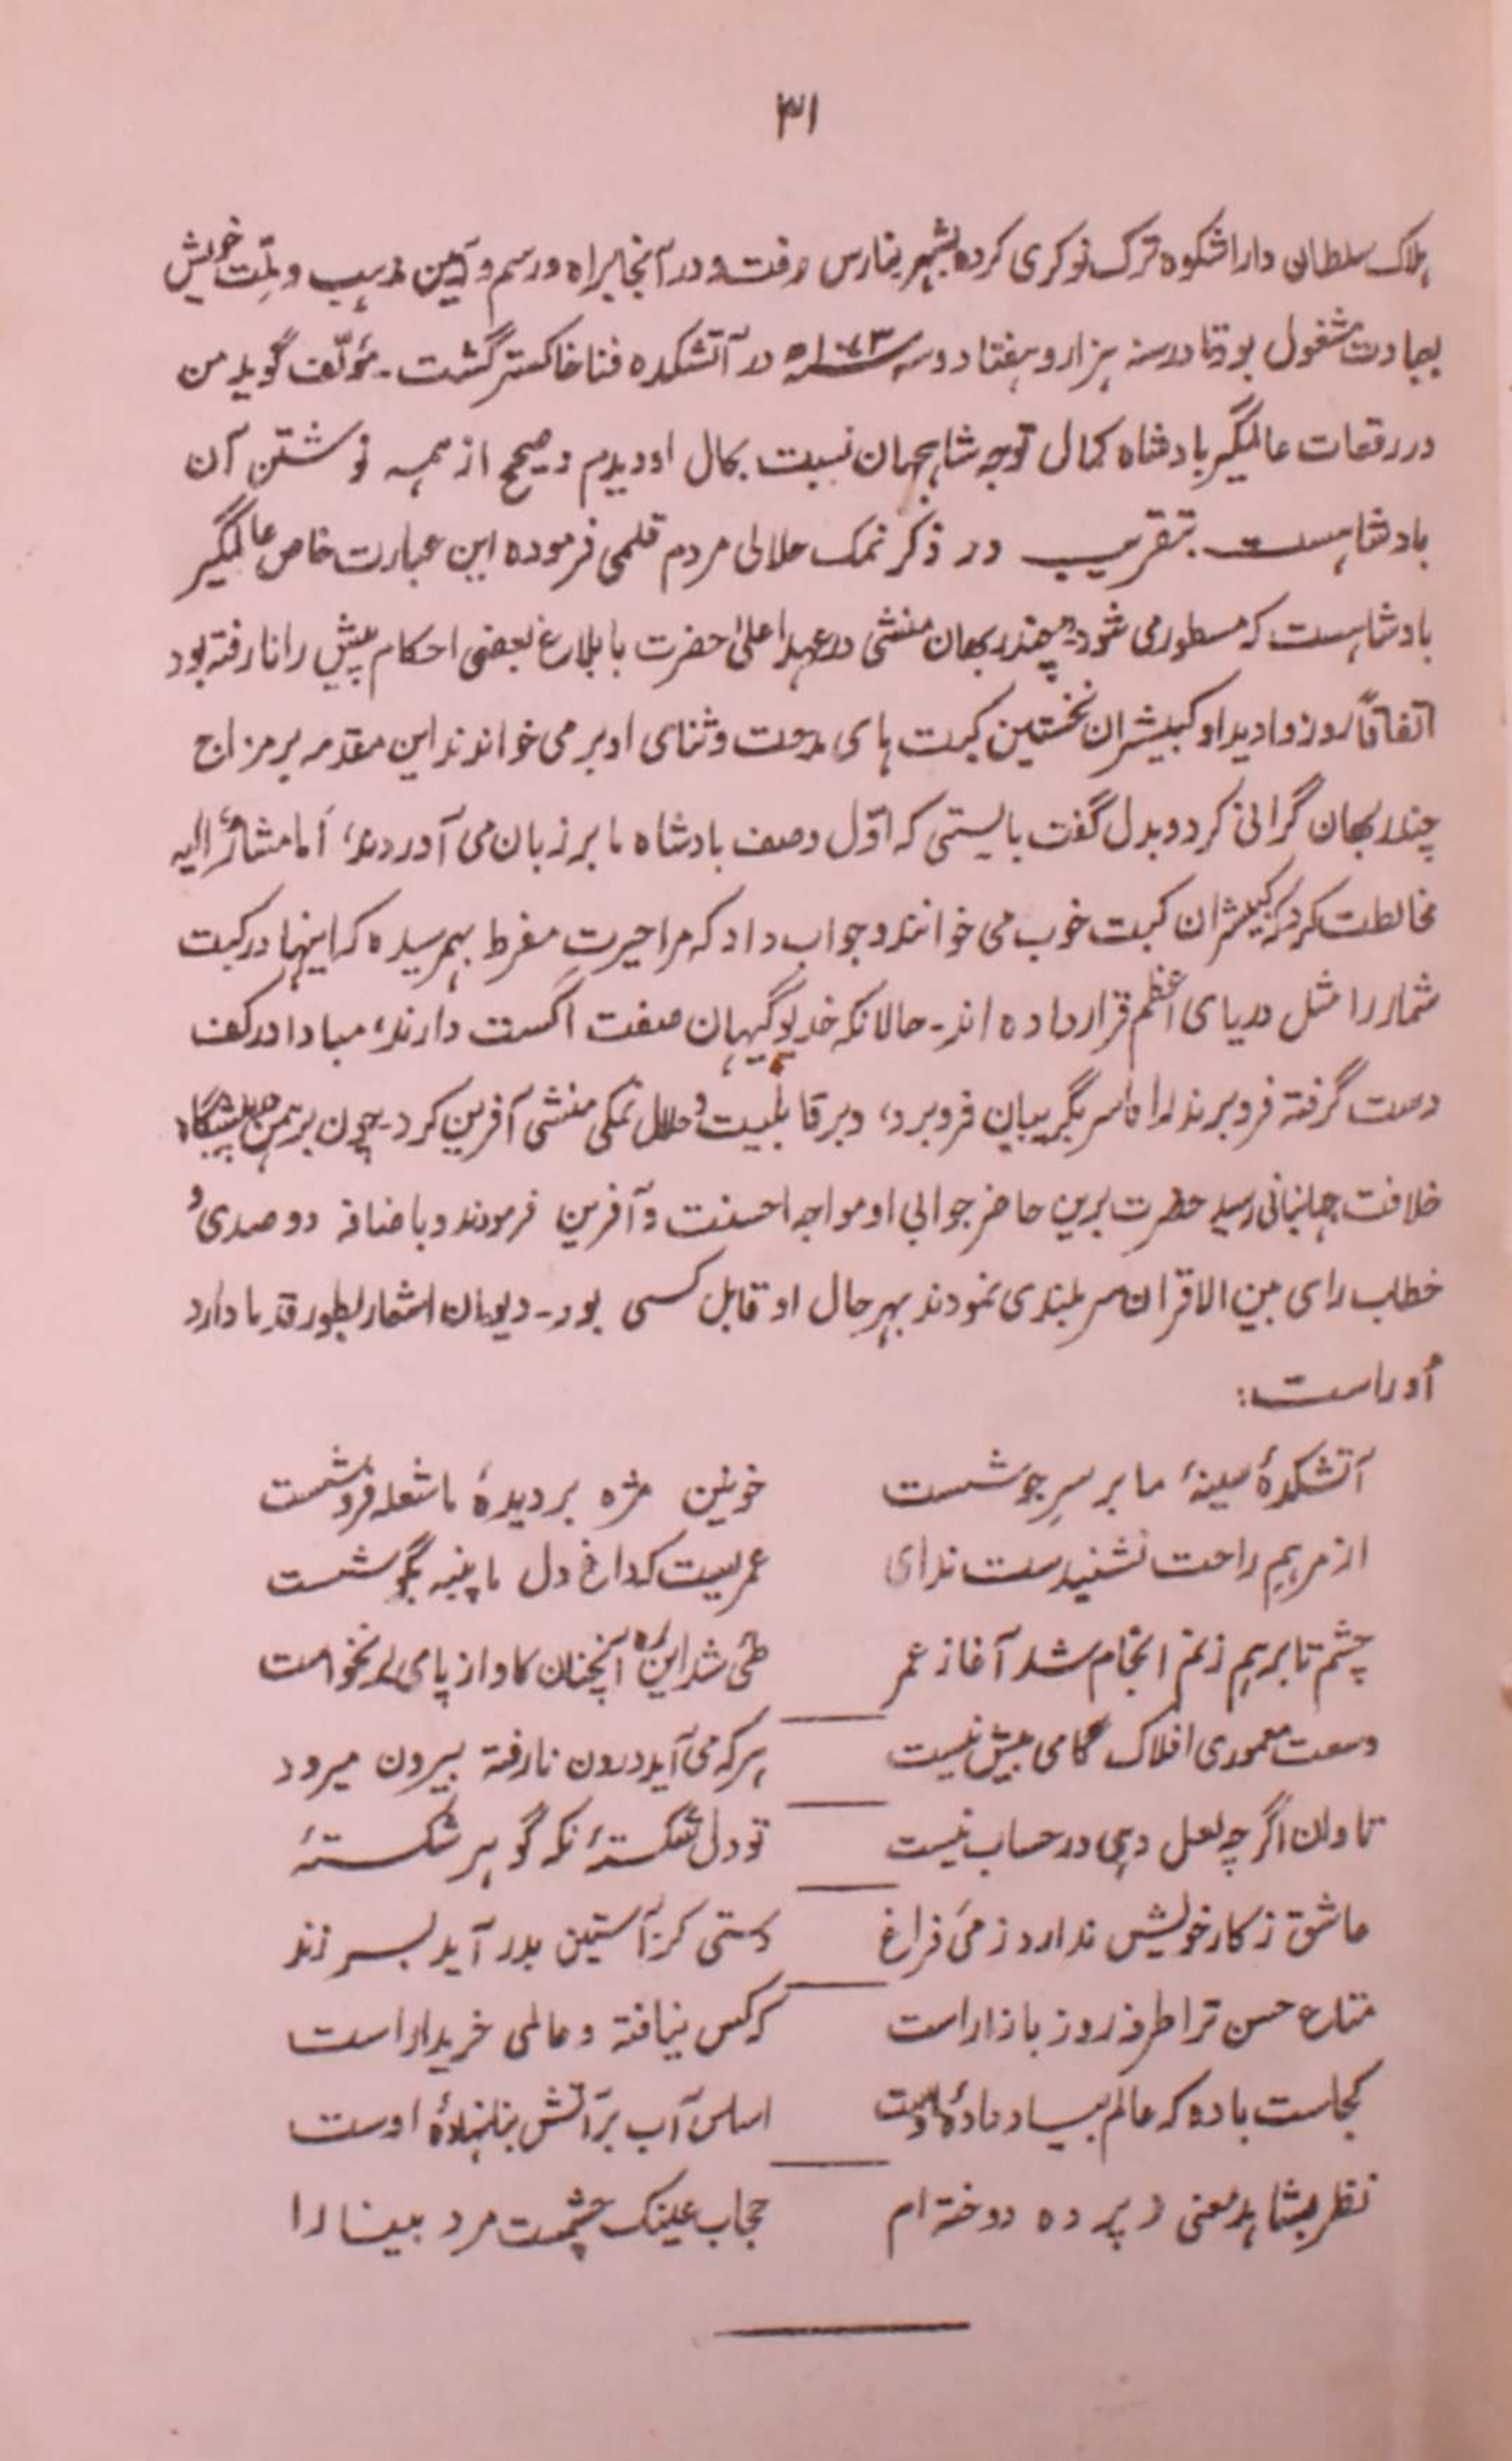 ۳۱
ہلاک سلطان داراشکوہ ترک نوکری کردہ بشہر بنارس رفت و در آنجا براہ و رسم و آئین مذہب و ملّت خویش
بعبادت مشغول بود تا در سنہ ہزار و ہفتاد و سہ ۱۰۷۳ھ در آتشکدہ فنا خاکستر گشت ۔ مؤلّف گوید من
در رقعات عالمگیر بادشاہ کمال توجہ شاہجہان نسبت بحال او دیدم و صحیح از ہمہ نوشتن آن
بادشاہست بتقریب در ذکر نمک حلالی مردم قلمی فرمودہ این عبارت خاص عالمگیر
بادشاہست کہ مسطور می شود۔ چندربھان منشی در عہد اعلیٰ حضرت با بلاغ بعضی احکام پیش رانا رفتہ بود
اتفاقاً روز وا دید او کبیشران نخستین کبت ہای مدحت و ثنای او بر می خواندند این مقدمہ بر مزاج
چندربھان گرانی کرد و بدل گفت بایستی کہ اوّل وصف بادشاہ ما بر زبان می آوردند، اما مشارٌ الیہ
مخالطت کرد کہ کبیشران کبت خوب می خوانند و جواب داد کہ مرا حیرتِ مفرط بہم رسیدہ کہ اینہا در کبت
شمار را مثل دریای اعظم قرار دادہ اند۔ حالانکہ خدیو گیہان صفت اگست دارند، مبادا در کف
دست گرفتہ فرو برند رانا سر بگریبان فرو برد، و بر قابلیت و حلال نمکی منشی آفرین کرد۔ چون برہمن بہ پیشگاہ
خلافت جہانبانی رسید حضرت برین حاضر جوابی او مواجہ احسنت و آفرین فرمودند و باضافہ دو صدی و
خطاب رای بین الاقران سربلندی نمودند بہر حال او قابل کسی بود۔ دیوان اشعار بطور قدما دارد
اُو راست:
آتشکدۂ سینۂ ما بر سرِ جوشست خونین مژہ بر دیدۂ ما شعلہ فروشست
از مرہمِ راحت نشنیدست ندای عمریست کہ داغِ دل ما پنبہ بگوشست
چشم تا برہم زنم انجام شد آغاز عمر طی شد این رہ آنچنان کاواز پای بر نخواست
وسعت معموری افلاک گامی بیش نیست ہر کہ می آید درون نارفتہ بیرون میرود
تاوان اگرچہ لعل دہی در حساب نیست تو دل شکستۂ نہ گوہر شکستۂ
عاشق ز کار خویش ندارد زمی فراغ دستی کز آستین بدر آید بسر زند
متاع حسن ترا طرفہ روز بازار است کہ کس نیافتہ و عالمی خریدار است
کجاست بادہ کہ عالم بیاد دادۂ اوست اساس آب بر آتش بنا نہادۂ اوست
نظر بشاہد معنی ز پردہ دوختہ ام حجاب عینک چشمست مرد بینا را